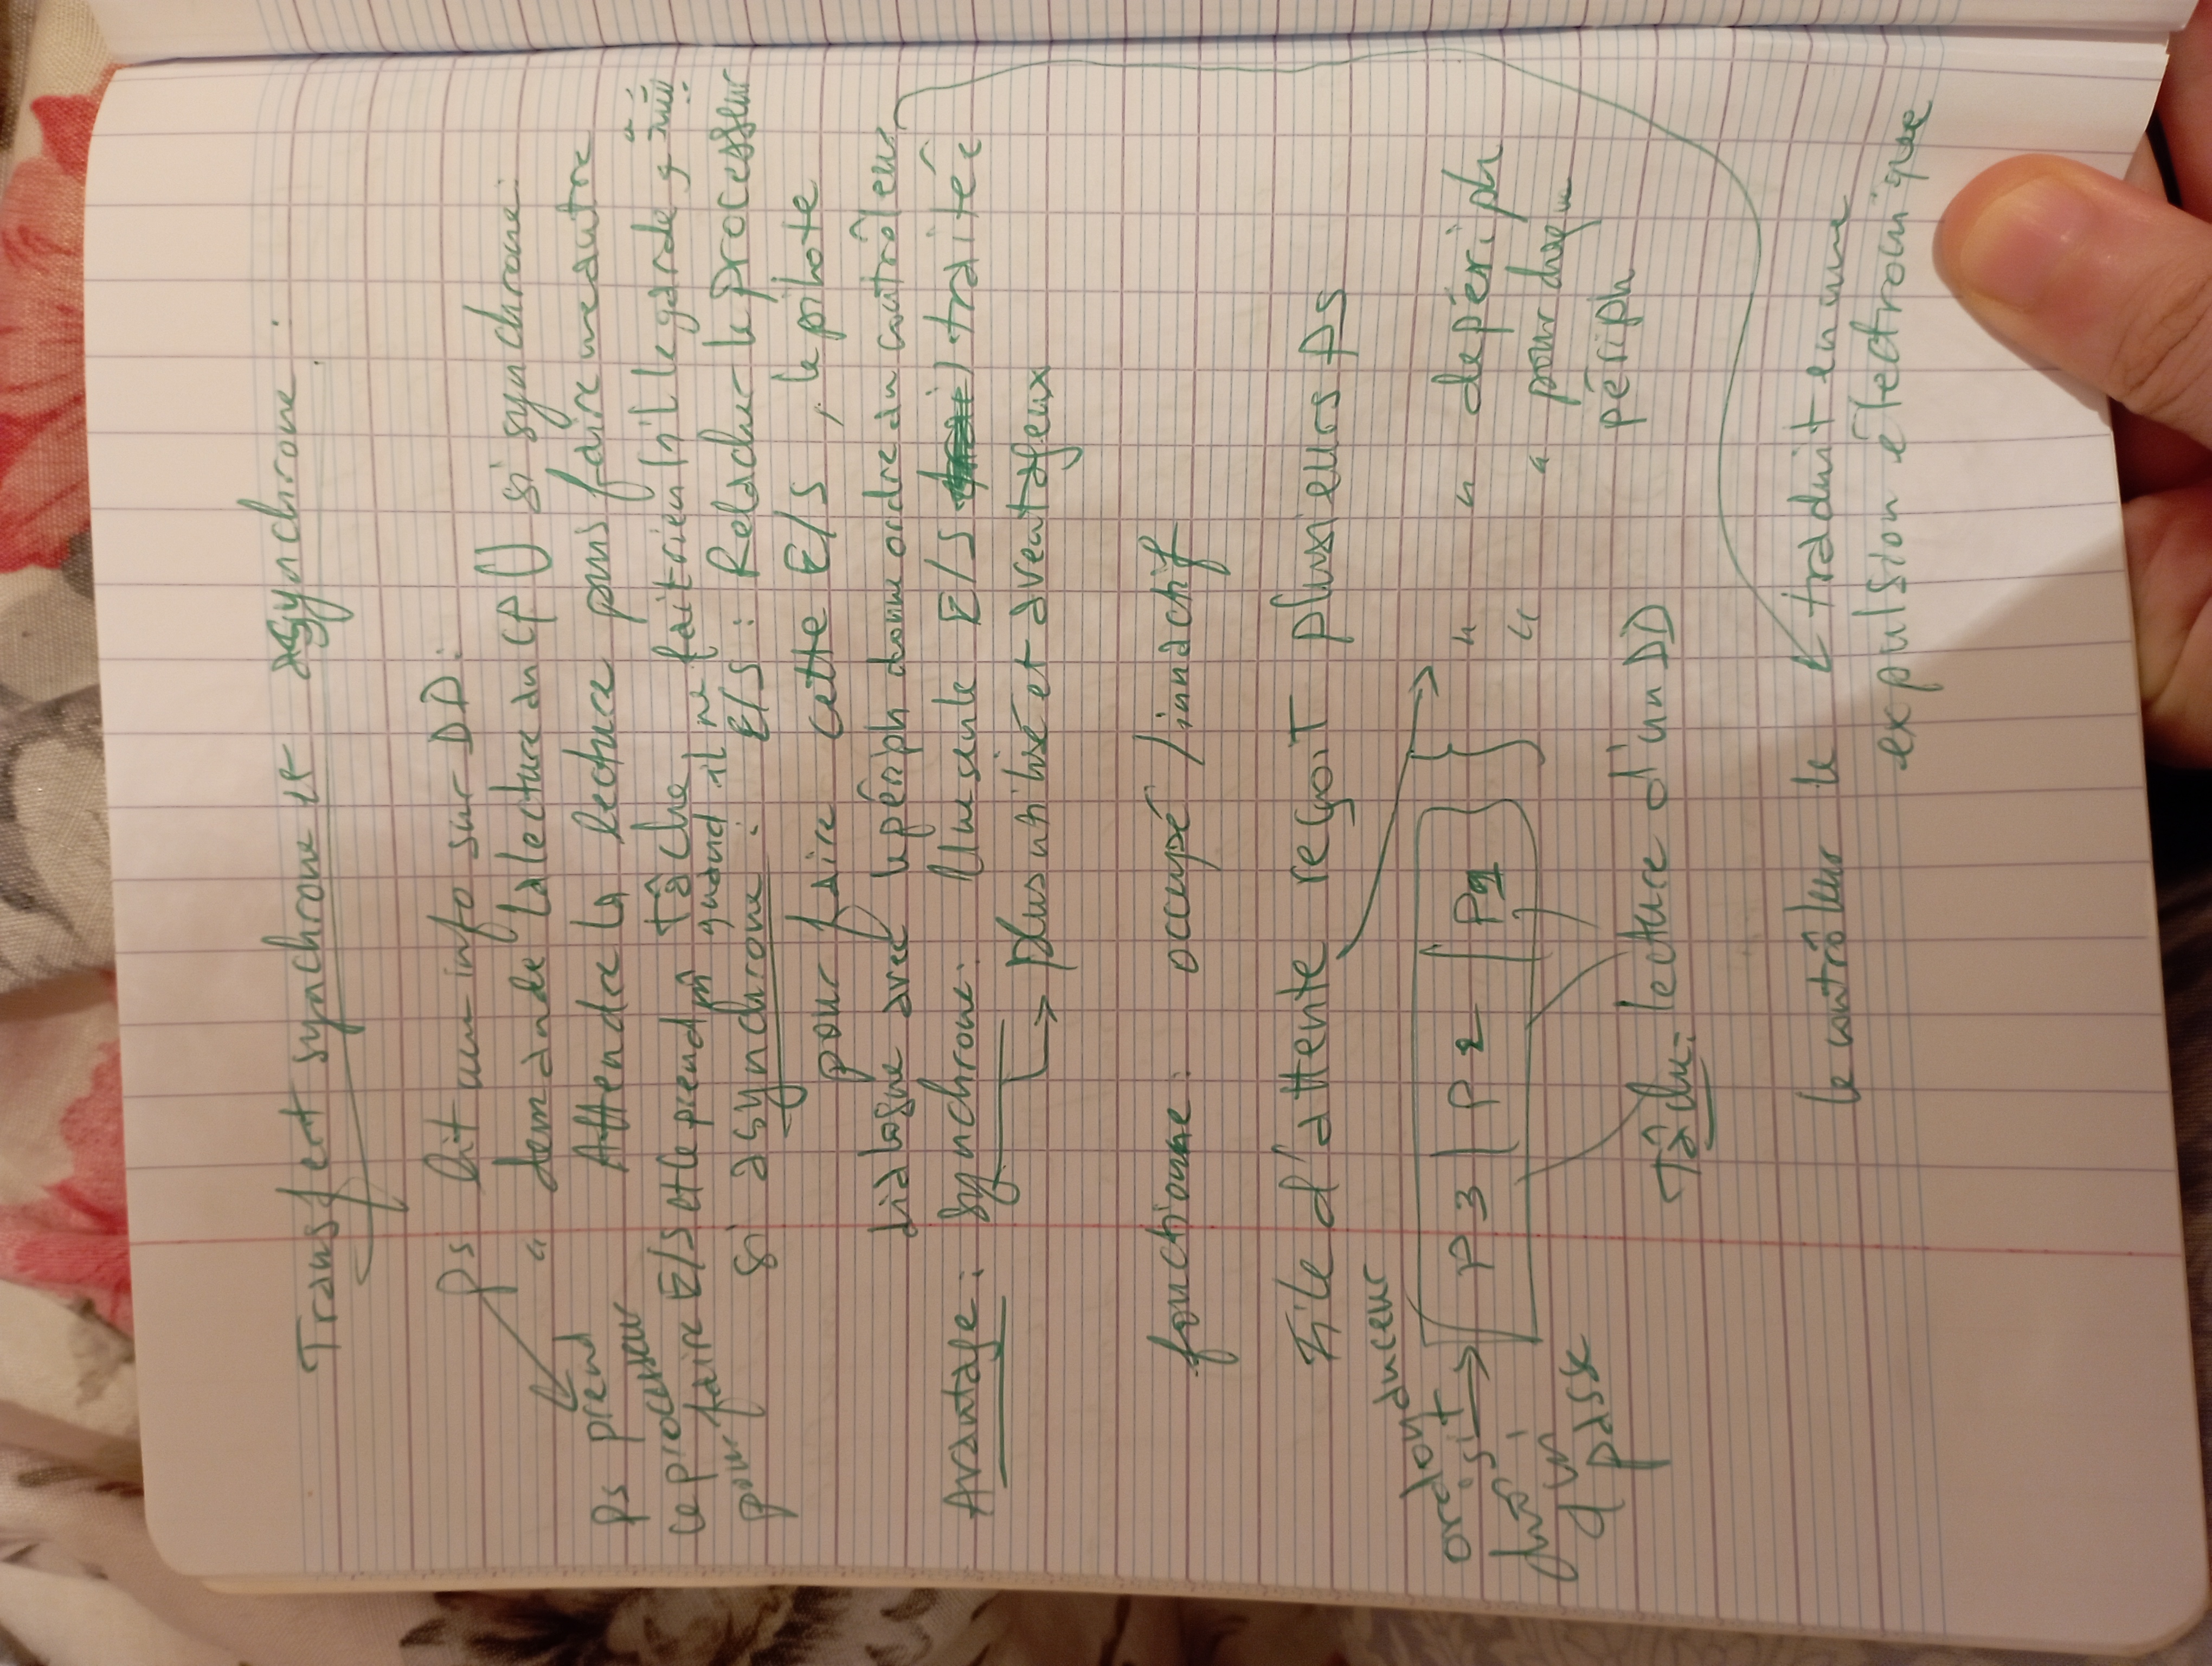 Transfert synchrone et asynchrone :
Ps lit une info sur DD :
" demande la lecture au CPU si synchrone :
Ps prend Attendre la lecture puis faire une autre
le processeur tâche
pour faire E/S et le prend m̂ quand il ne fait rien (il le garde
si asynchrone : E/S : Relacher le processeur
pour faire cette E/S, le pilote
dialogue avec le périph donne ordre au contrôleur
Avantage : synchrone : Une seule E/S traitée
→ plus utilisé et aventageux
fonctionne : occupé / innactif
File d'attente reçoit plusieurs Ps
ordonnanceur
choisit → P3 | P2 | P1 } " " de périph
qui " " pour chaque
passe périph
Tâche : lecture d'un DD
le contrôleur le traduit en une
expulsion électronique